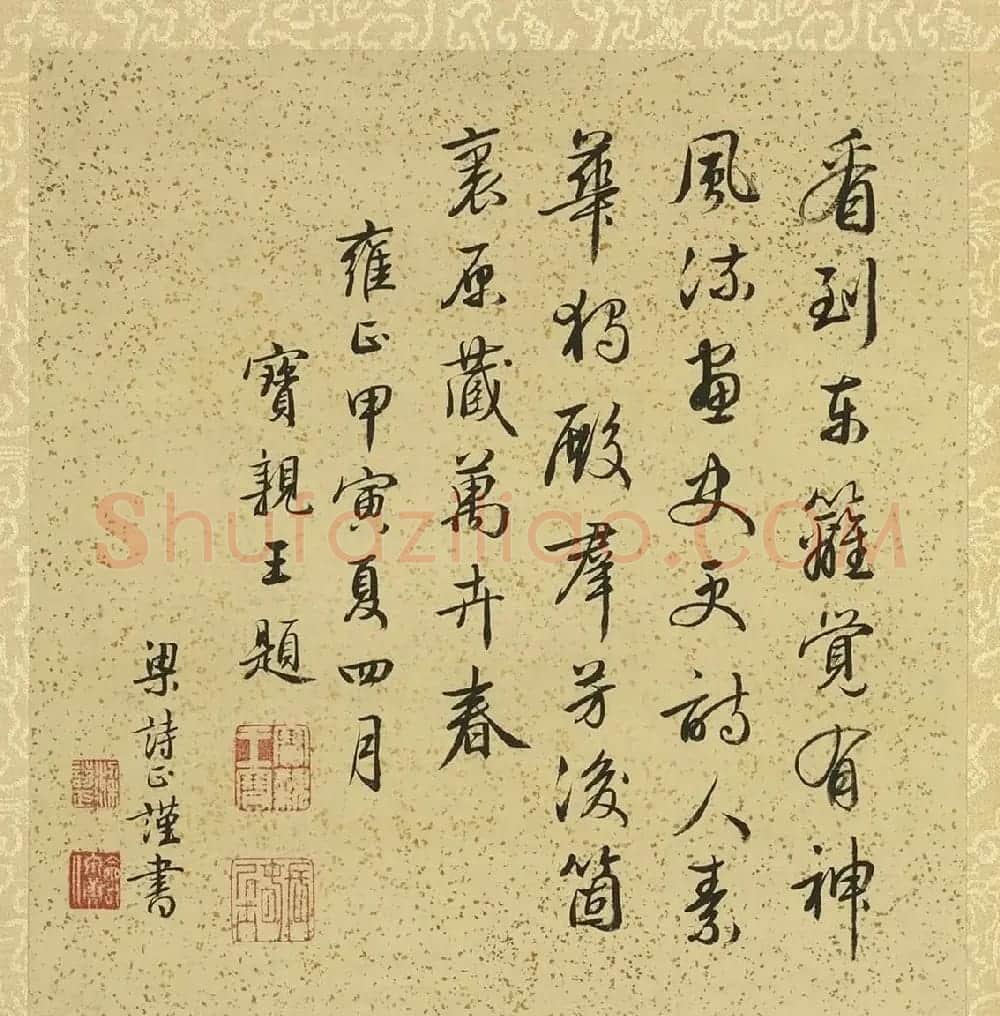 看到東籬覺有神
風流畫史更詩人素
華獨殿羣芳後箇
裏原藏萬卉春
雍正甲寅夏四月
寶親王題
梁詩正謹書
Shufaziliao.com